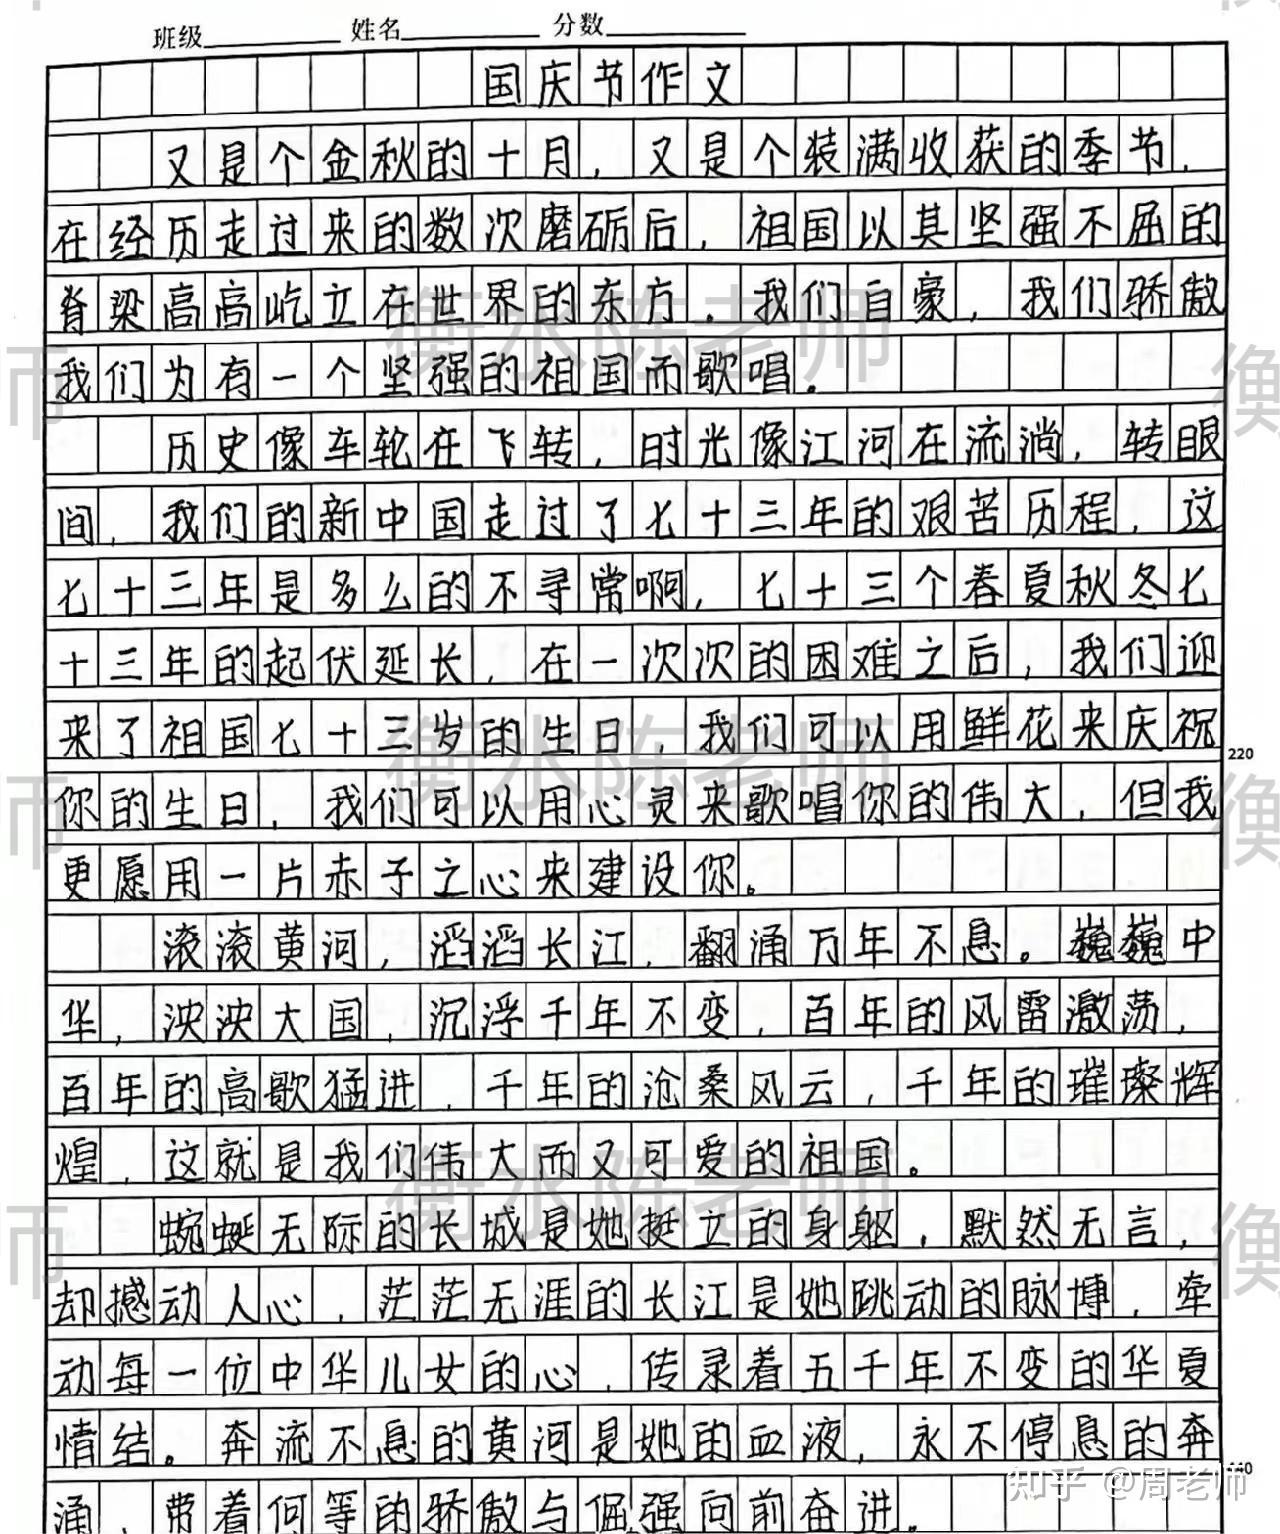 班级 姓名 分数
国庆节作文
又是个金秋的十月，又是个装满收获的季节，
在经历走过来的数次磨砺后，祖国以其坚强不屈的
脊梁高高屹立在世界的东方。我们自豪，我们骄傲
我们为有一个坚强的祖国而歌唱。
历史像车轮在飞转，时光像江河在流淌，转眼
间，我们的新中国走过了七十三年的艰苦历程，这
七十三年是多么的不寻常啊，七十三个春夏秋冬七
十三年的起伏延长，在一次次的困难之后，我们迎
来了祖国七十三岁的生日，我们可以用鲜花来庆祝
220
你的生日，我们可以用心灵来歌唱你的伟大，但我
更愿用一片赤子之心来建设你。
滚滚黄河，滔滔长江，翻涌万年不息。巍巍中
华，泱泱大国，沉浮千年不变，百年的风雷激荡，
百年的高歌猛进，千年的沧桑风云，千年的璀璨辉
煌，这就是我们伟大而又可爱的祖国。
蜿蜒无际的长城是她挺立的身躯，默然无言，
却撼动人心，茫茫无涯的长江是她跳动的脉博，牵
动每一位中华儿女的心，传录着五千年不变的华夏
情结。奔流不息的黄河是她的血液，永不停息的奔
涌，带着何等的骄傲与倔强向前奋进。
衡水陈老师
衡水陈老师
衡水陈老师
知乎 @周老师